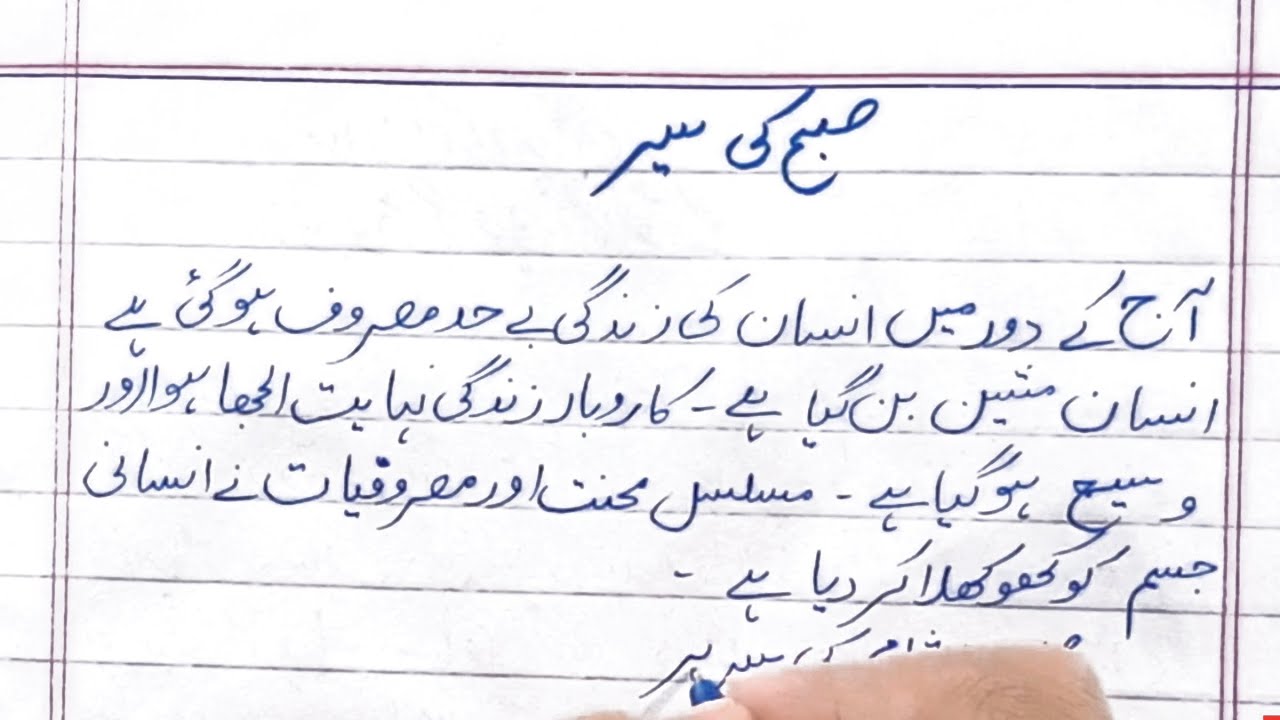 صبح کی سیر
آج کے دور میں انسان کی زندگی بے حد مصروف ہوگئی ہے
انسان مشین بن گیا ہے ۔ کاروبار زندگی نہایت الجھا ہوا اور
وسیع ہوگیا ہے ۔ مسلسل محنت اور مصروفیات نے انسانی
جسم کو کھوکھلا کر دیا ہے ۔
شام کی سیر